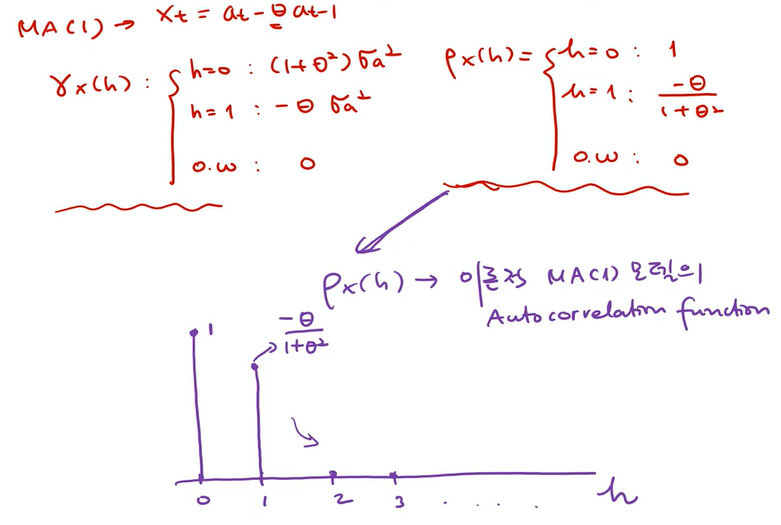 MA(1) → Xt = at - θ at-1
γx(h) : { h=0 : (1+θ²) σa²
h=1 : -θ σa²
o.w : 0
ρx(h) = { h=0 : 1
h=1 : -θ / 1+θ²
o.w : 0
ρx(h) → 이론적 MA(1) 모형의
Autocorrelation function
1
-θ / 1+θ²
0 1 2 3 . . . . h